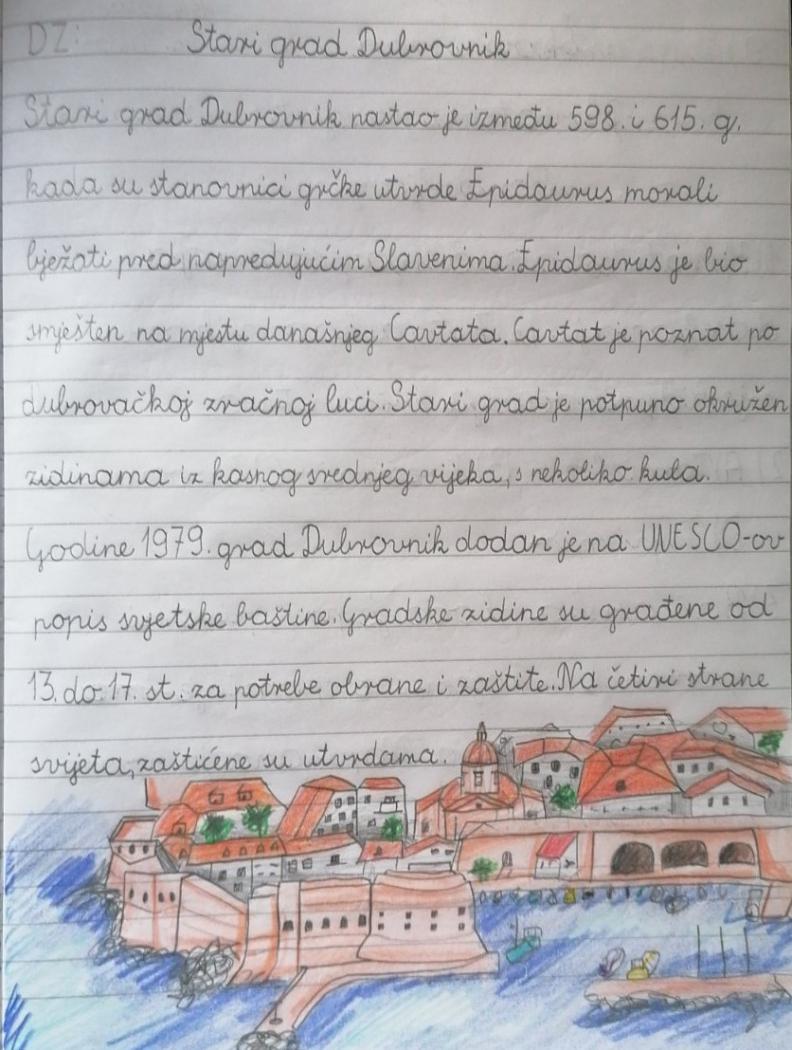 DZ: Stari grad Dubrovnik
Stari grad Dubrovnik nastao je između 598. i 615. g.
kada su stanovnici grčke utvrde Epidaurus morali
bježati pred napredujućim Slavenima. Epidaurus je bio
smješten na mjestu današnjeg Cavtata. Cavtat je poznat po
dubrovačkoj zračnoj luci. Stari grad je potpuno okružen
zidinama iz kasnog srednjeg vijeka, s nekoliko kula.
Godine 1979. grad Dubrovnik dodan je na UNESCO-ov
popis svjetske baštine. Gradske zidine su građene od
13. do 17. st. za potrebe obrane i zaštite. Na četiri strane
svijeta, zaštićene su utvrdama.